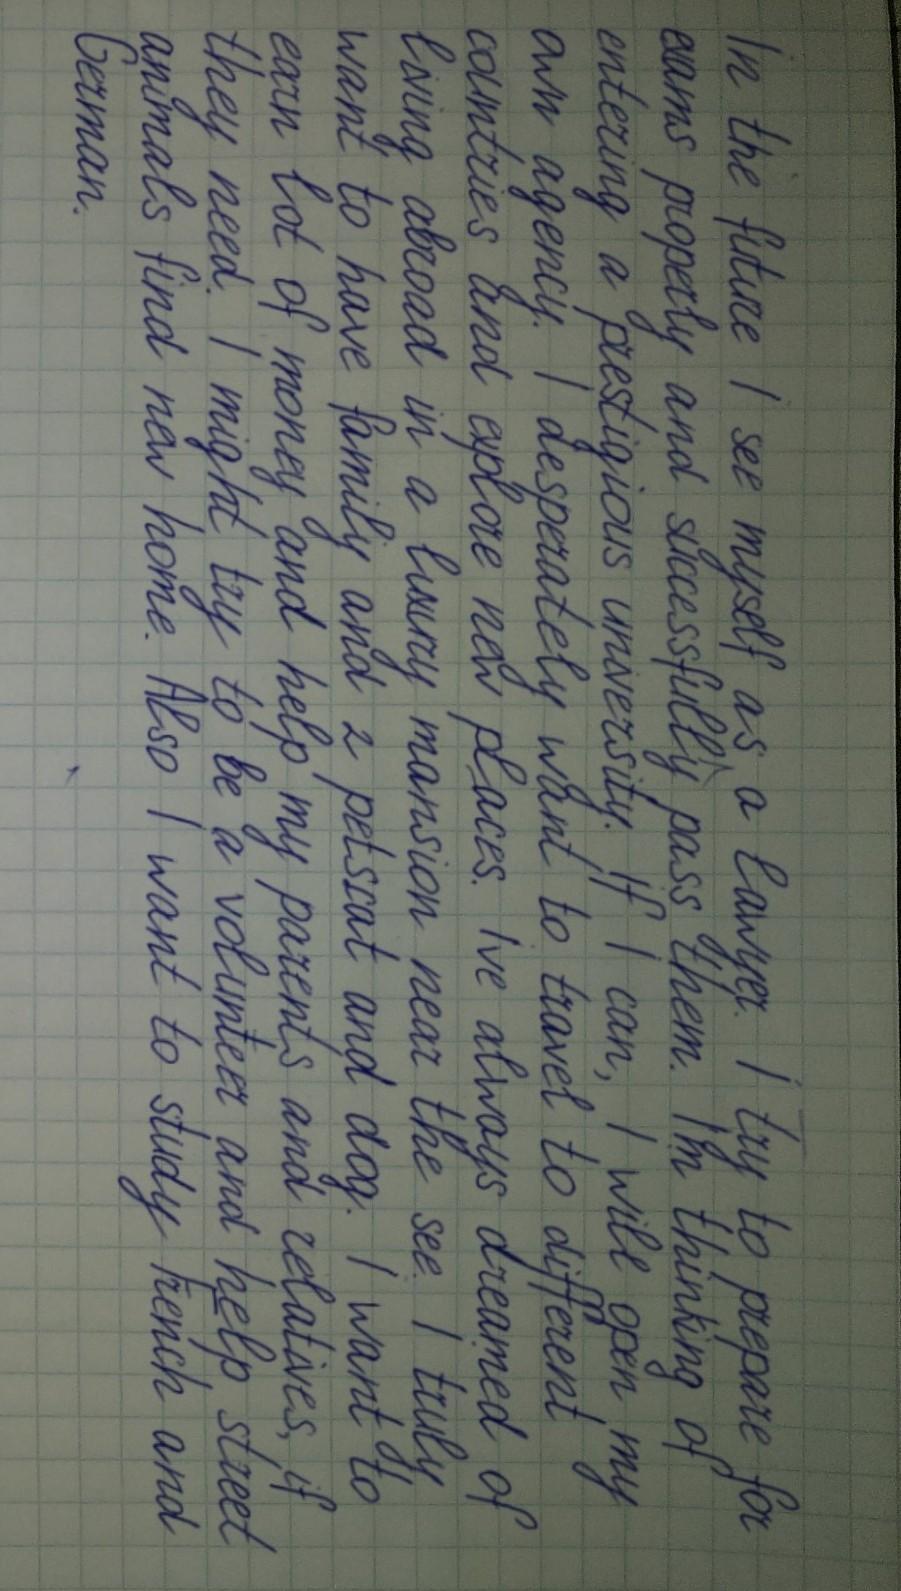 In the future I see myself as a lawyer. I try to prepare for
exams properly and successfully pass them. I'm thinking of
entering a prestigious university. If I can, I will open my
own agency. I desperately want to travel to different
countries and explore new places. I've always dreamed of
living abroad in a luxury mansion near the see. I truly
want to have family and 2 pets:cat and dog. I want to
earn lot of money and help my parents and relatives, if
they need. I might try to be a volunteer and help street
animals find new home. Also I want to study French and
German.